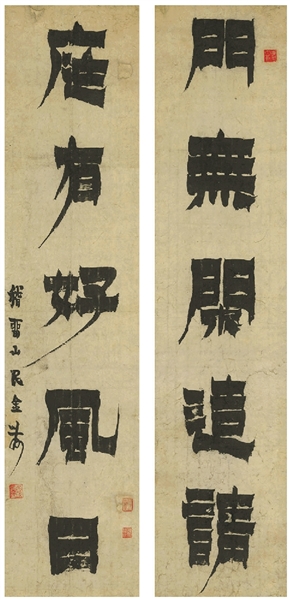 門無閑造請
庭有好風日
稽留山民金農